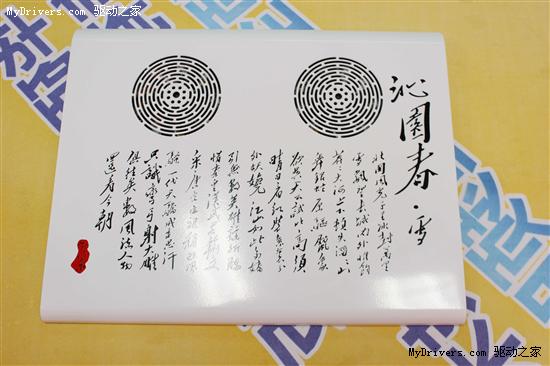 MyDrivers.com 驱动之家
沁園春·雪
北國風光千里冰封萬里
雪飄望長城内外惟餘
莽莽大河上下頓失滔滔山
舞銀蛇原馳蠟象
欲與天公試比高須
晴日看紅裝素裹分
外妖嬈江山如此多嬌
引無數英雄競折腰
惜秦皇漢武略輸文
采唐宗宋祖稍遜風
騷一代天驕成吉思汗
只識彎弓射大雕
俱往矣數風流人物
還看今朝
MyDrivers.com 驱动之家